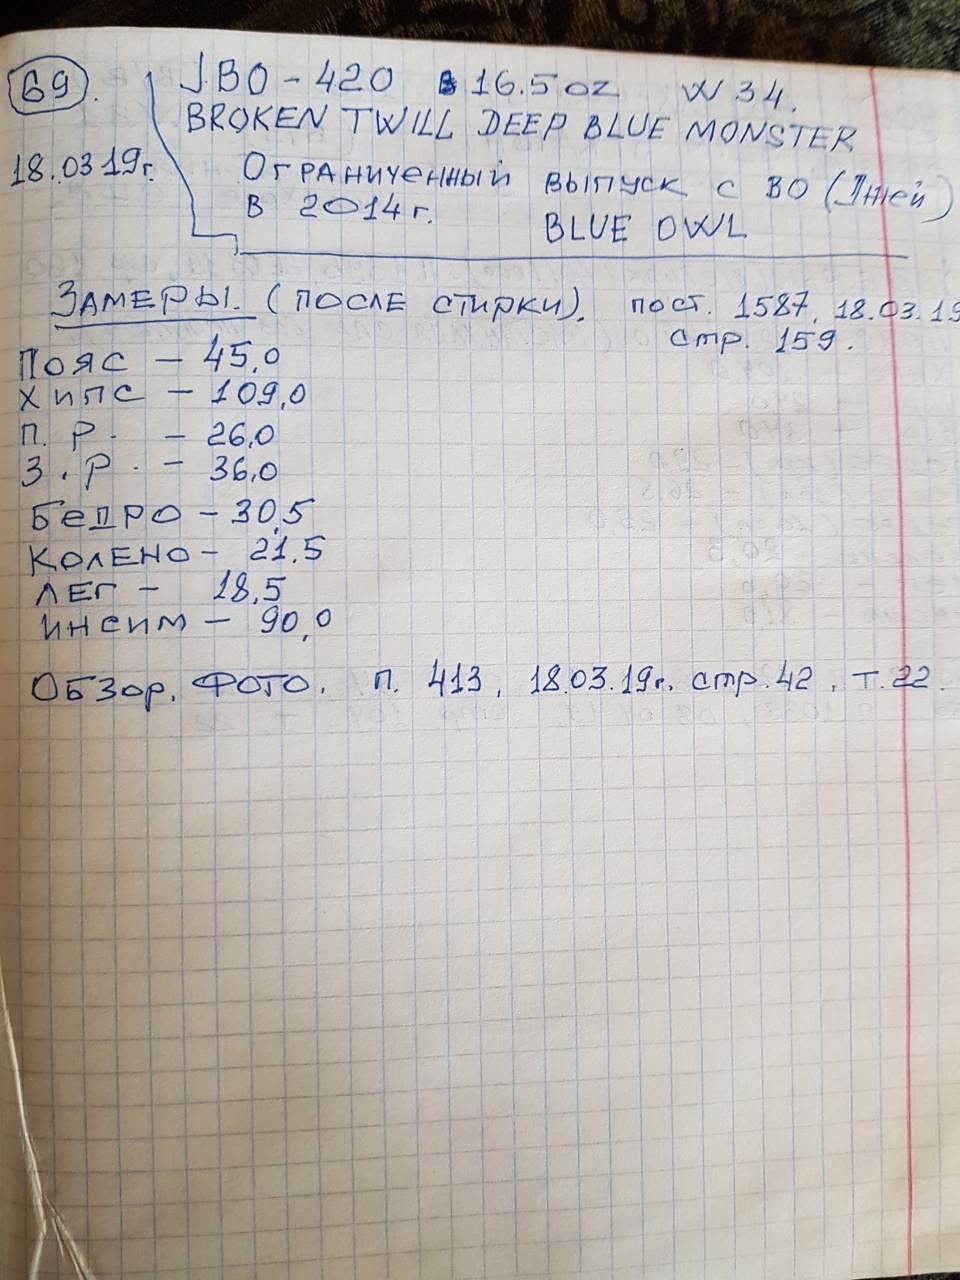 69.
JBO - 420 16.5 oz W 34.
BROKEN TWILL DEEP BLUE MONSTER
18.03 19г. Ограниченный выпуск с BO (Джей)
в 2014г. BLUE OWL
Замеры. (после стирки). пост. 1587, 18.03.19
стр. 159.
Пояс - 45,0
Хипс - 109,0
П. Р. - 26,0
З. Р. - 36,0
Бедро - 30,5
Колено - 21.5
Лег - 18,5
Инсим - 90,0
Обзор. Фото. п. 413, 18.03.19г. стр. 42, т. 22.